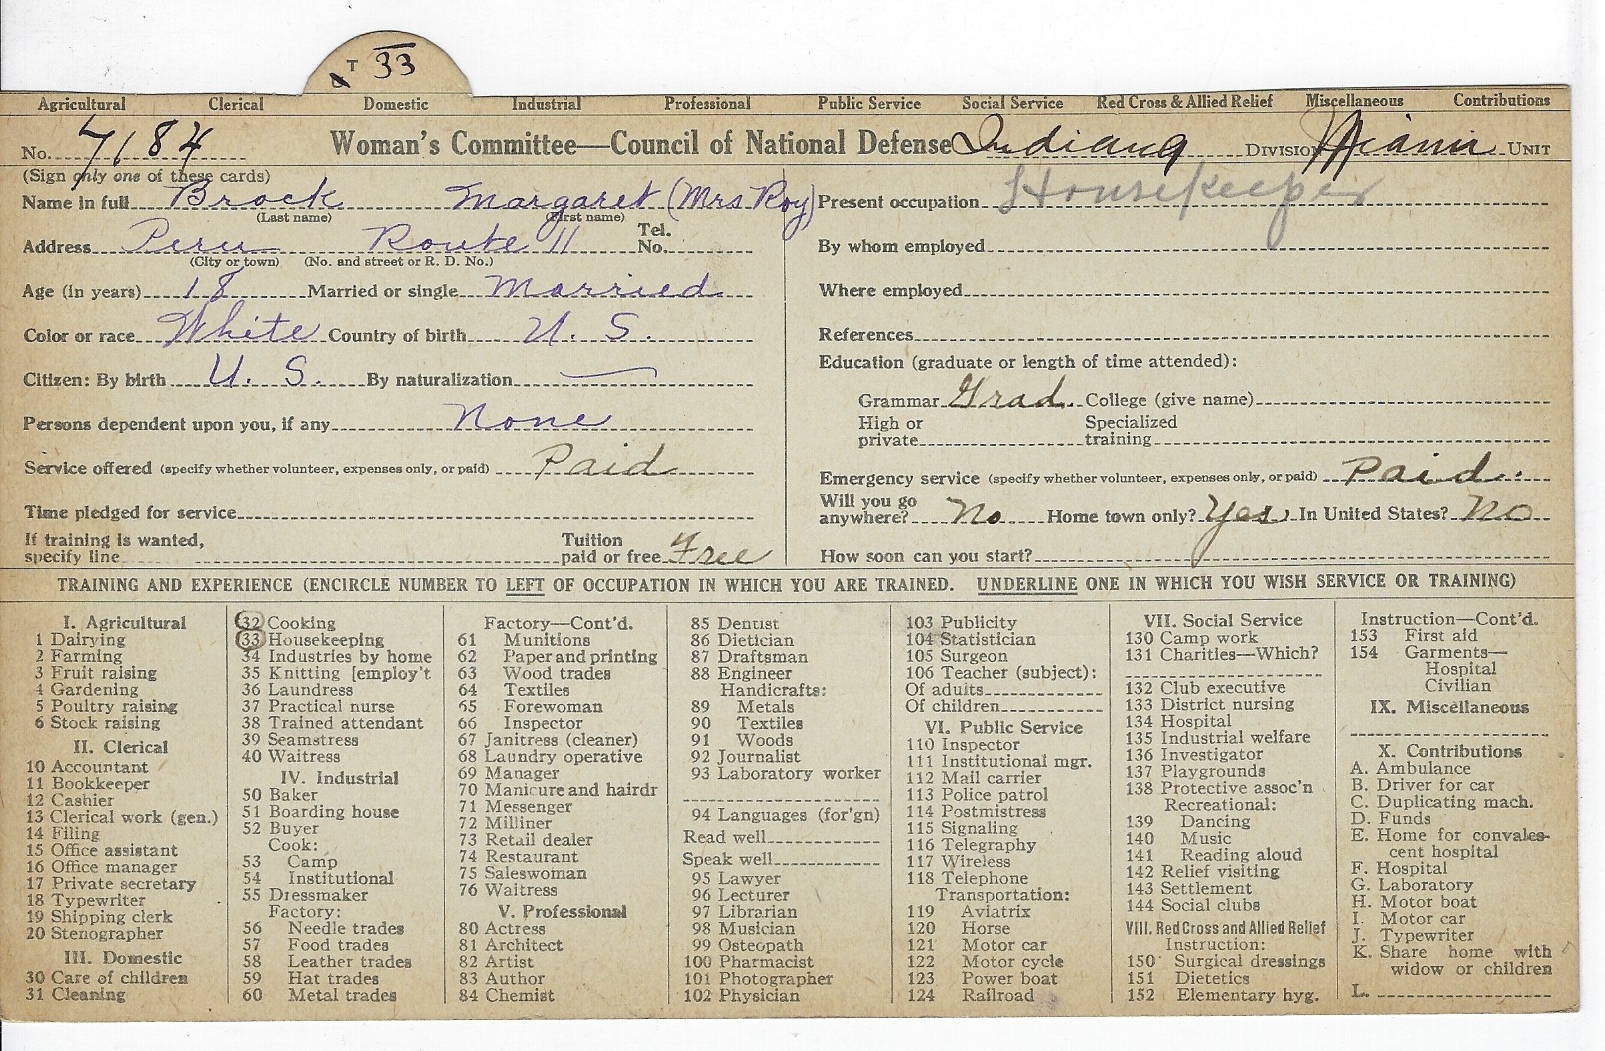 T 33
Agricultural Clerical Domestic Industrial Professional Public Service Social Service Red Cross & Allied Relief Miscellaneous Contributions
No. 7184 Woman's Committee—Council of National Defense Indiana Division Miami Unit
(Sign only one of these cards)
Name in full Brock Margaret (Mrs Roy)
(Last name) (First name)
Address Peru Route 11 Tel. No.
(City or town) (No. and street or R. D. No.)
Age (in years) 18 Married or single Married
Color or race White Country of birth U. S.
Citizen: By birth U. S. By naturalization
Persons dependent upon you, if any None
Service offered (specify whether volunteer, expenses only, or paid) Paid
Time pledged for service
If training is wanted,
specify line
Tuition
paid or free Free
Present occupation Housekeeper
By whom employed
Where employed
References
Education (graduate or length of time attended):
Grammar Grad. College (give name)
High or
private
Specialized
training
Emergency service (specify whether volunteer, expenses only, or paid) Paid.
Will you go
anywhere? No Home town only? Yes In United States? No
How soon can you start?
TRAINING AND EXPERIENCE (ENCIRCLE NUMBER TO LEFT OF OCCUPATION IN WHICH YOU ARE TRAINED. UNDERLINE ONE IN WHICH YOU WISH SERVICE OR TRAINING)
I. Agricultural
1 Dairying
2 Farming
3 Fruit raising
4 Gardening
5 Poultry raising
6 Stock raising
II. Clerical
10 Accountant
11 Bookkeeper
12 Cashier
13 Clerical work (gen.)
14 Filing
15 Office assistant
16 Office manager
17 Private secretary
18 Typewriter
19 Shipping clerk
20 Stenographer
III. Domestic
30 Care of children
31 Cleaning
32 Cooking
33 Housekeeping
34 Industries by home
35 Knitting [employ't
36 Laundress
37 Practical nurse
38 Trained attendant
39 Seamstress
40 Waitress
IV. Industrial
50 Baker
51 Boarding house
52 Buyer
Cook:
53 Camp
54 Institutional
55 Dressmaker
Factory:
56 Needle trades
57 Food trades
58 Leather trades
59 Hat trades
60 Metal trades
Factory—Cont'd.
61 Munitions
62 Paper and printing
63 Wood trades
64 Textiles
65 Forewoman
66 Inspector
67 Janitress (cleaner)
68 Laundry operative
69 Manager
70 Manicure and hairdr
71 Messenger
72 Milliner
73 Retail dealer
74 Restaurant
75 Saleswoman
76 Waitress
V. Professional
80 Actress
81 Architect
82 Artist
83 Author
84 Chemist
85 Dentist
86 Dietician
87 Draftsman
88 Engineer
Handicrafts:
89 Metals
90 Textiles
91 Woods
92 Journalist
93 Laboratory worker
94 Languages (for'gn)
Read well
Speak well
95 Lawyer
96 Lecturer
97 Librarian
98 Musician
99 Osteopath
100 Pharmacist
101 Photographer
102 Physician
103 Publicity
104 Statistician
105 Surgeon
106 Teacher (subject):
Of adults
Of children
VI. Public Service
110 Inspector
111 Institutional mgr.
112 Mail carrier
113 Police patrol
114 Postmistress
115 Signaling
116 Telegraphy
117 Wireless
118 Telephone
Transportation:
119 Aviatrix
120 Horse
121 Motor car
122 Motor cycle
123 Power boat
124 Railroad
VII. Social Service
130 Camp work
131 Charities—Which?
132 Club executive
133 District nursing
134 Hospital
135 Industrial welfare
136 Investigator
137 Playgrounds
138 Protective assoc'n
Recreational:
139 Dancing
140 Music
141 Reading aloud
142 Relief visiting
143 Settlement
144 Social clubs
VIII. Red Cross and Allied Relief
Instruction:
150 Surgical dressings
151 Dietetics
152 Elementary hyg.
Instruction—Cont'd.
153 First aid
154 Garments—
Hospital
Civilian
IX. Miscellaneous
X. Contributions
A. Ambulance
B. Driver for car
C. Duplicating mach.
D. Funds
E. Home for convales-
cent hospital
F. Hospital
G. Laboratory
H. Motor boat
I. Motor car
J. Typewriter
K. Share home with
widow or children
L.